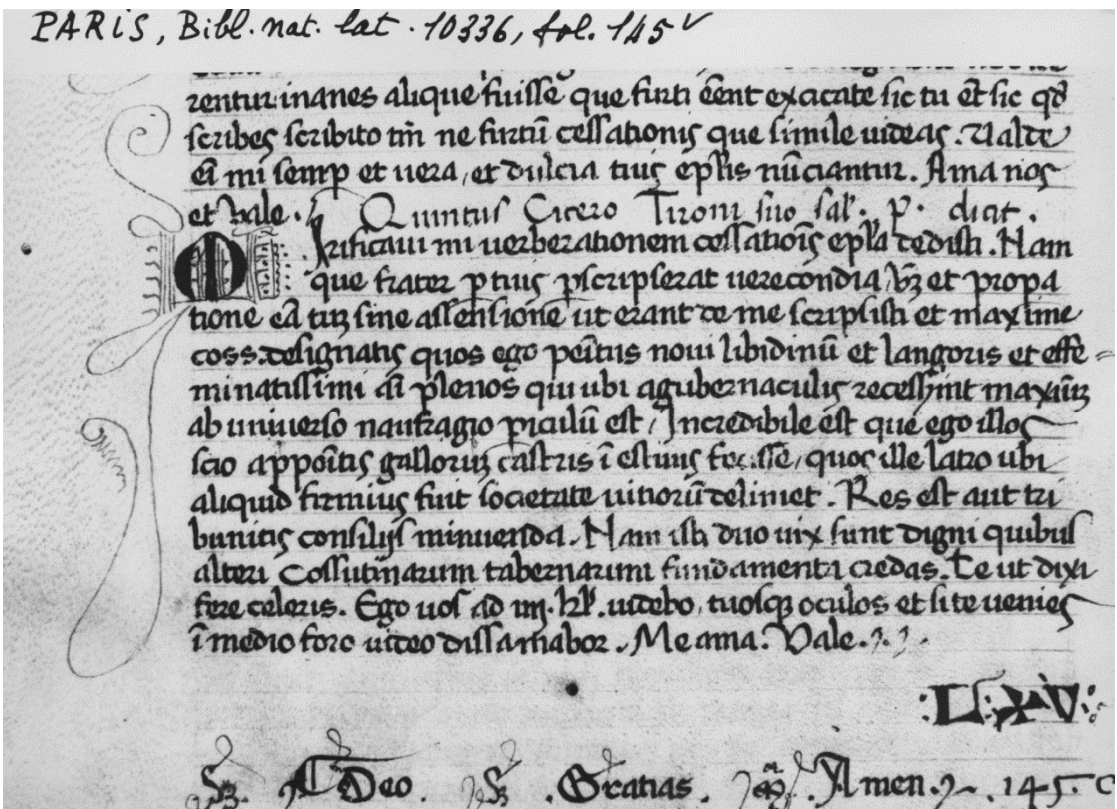 PARIS, Bibl. nat. lat. 10336, fol. 145 v
rentur inanes alique fuisse que furti eent excitate sic tu et sic qd
scribes scribito tm ne furtū cessationis que simile uideas. Valde
eī mi semp et uera, et dulcia tuis eplis nūciantur. Ama nos
et vale.
Quintus Cicero Tironi suo sal. p. dicit.
uerberationem cessatiōis epla dedisti. Nam
que frater ptius pscripserat uerecondia, et propa
tione eā sine assensione ut erant de me scripsisti et maxime
coss. designatis quos ego penitus noui libidinū et langoris et effe=
minatissimi aī plenos qui ubi agubernaculis recesserint maxiūz
ab uniuerso naufragio piculū est, Incredibile est que ego illos
scio appoītis galloruz castris ī estiuis fecisse, quos ille latro ubi
aliquid firmius fuit societate uitiorū deliniet. Res est aut tri
bunitis consilijs minuenda. Nam isti duo uix sunt digni quibus
alteri Cossutinarum tabernarum fundamenta credas. Te ut dixi
fere celeris. Ego uos ad iiij. kl. uidebo, tuosq oculos et si te ueniēs
ī medio foro uideo dissamabor. Me ama. Vale.
Deo Gratias. Amen. 145